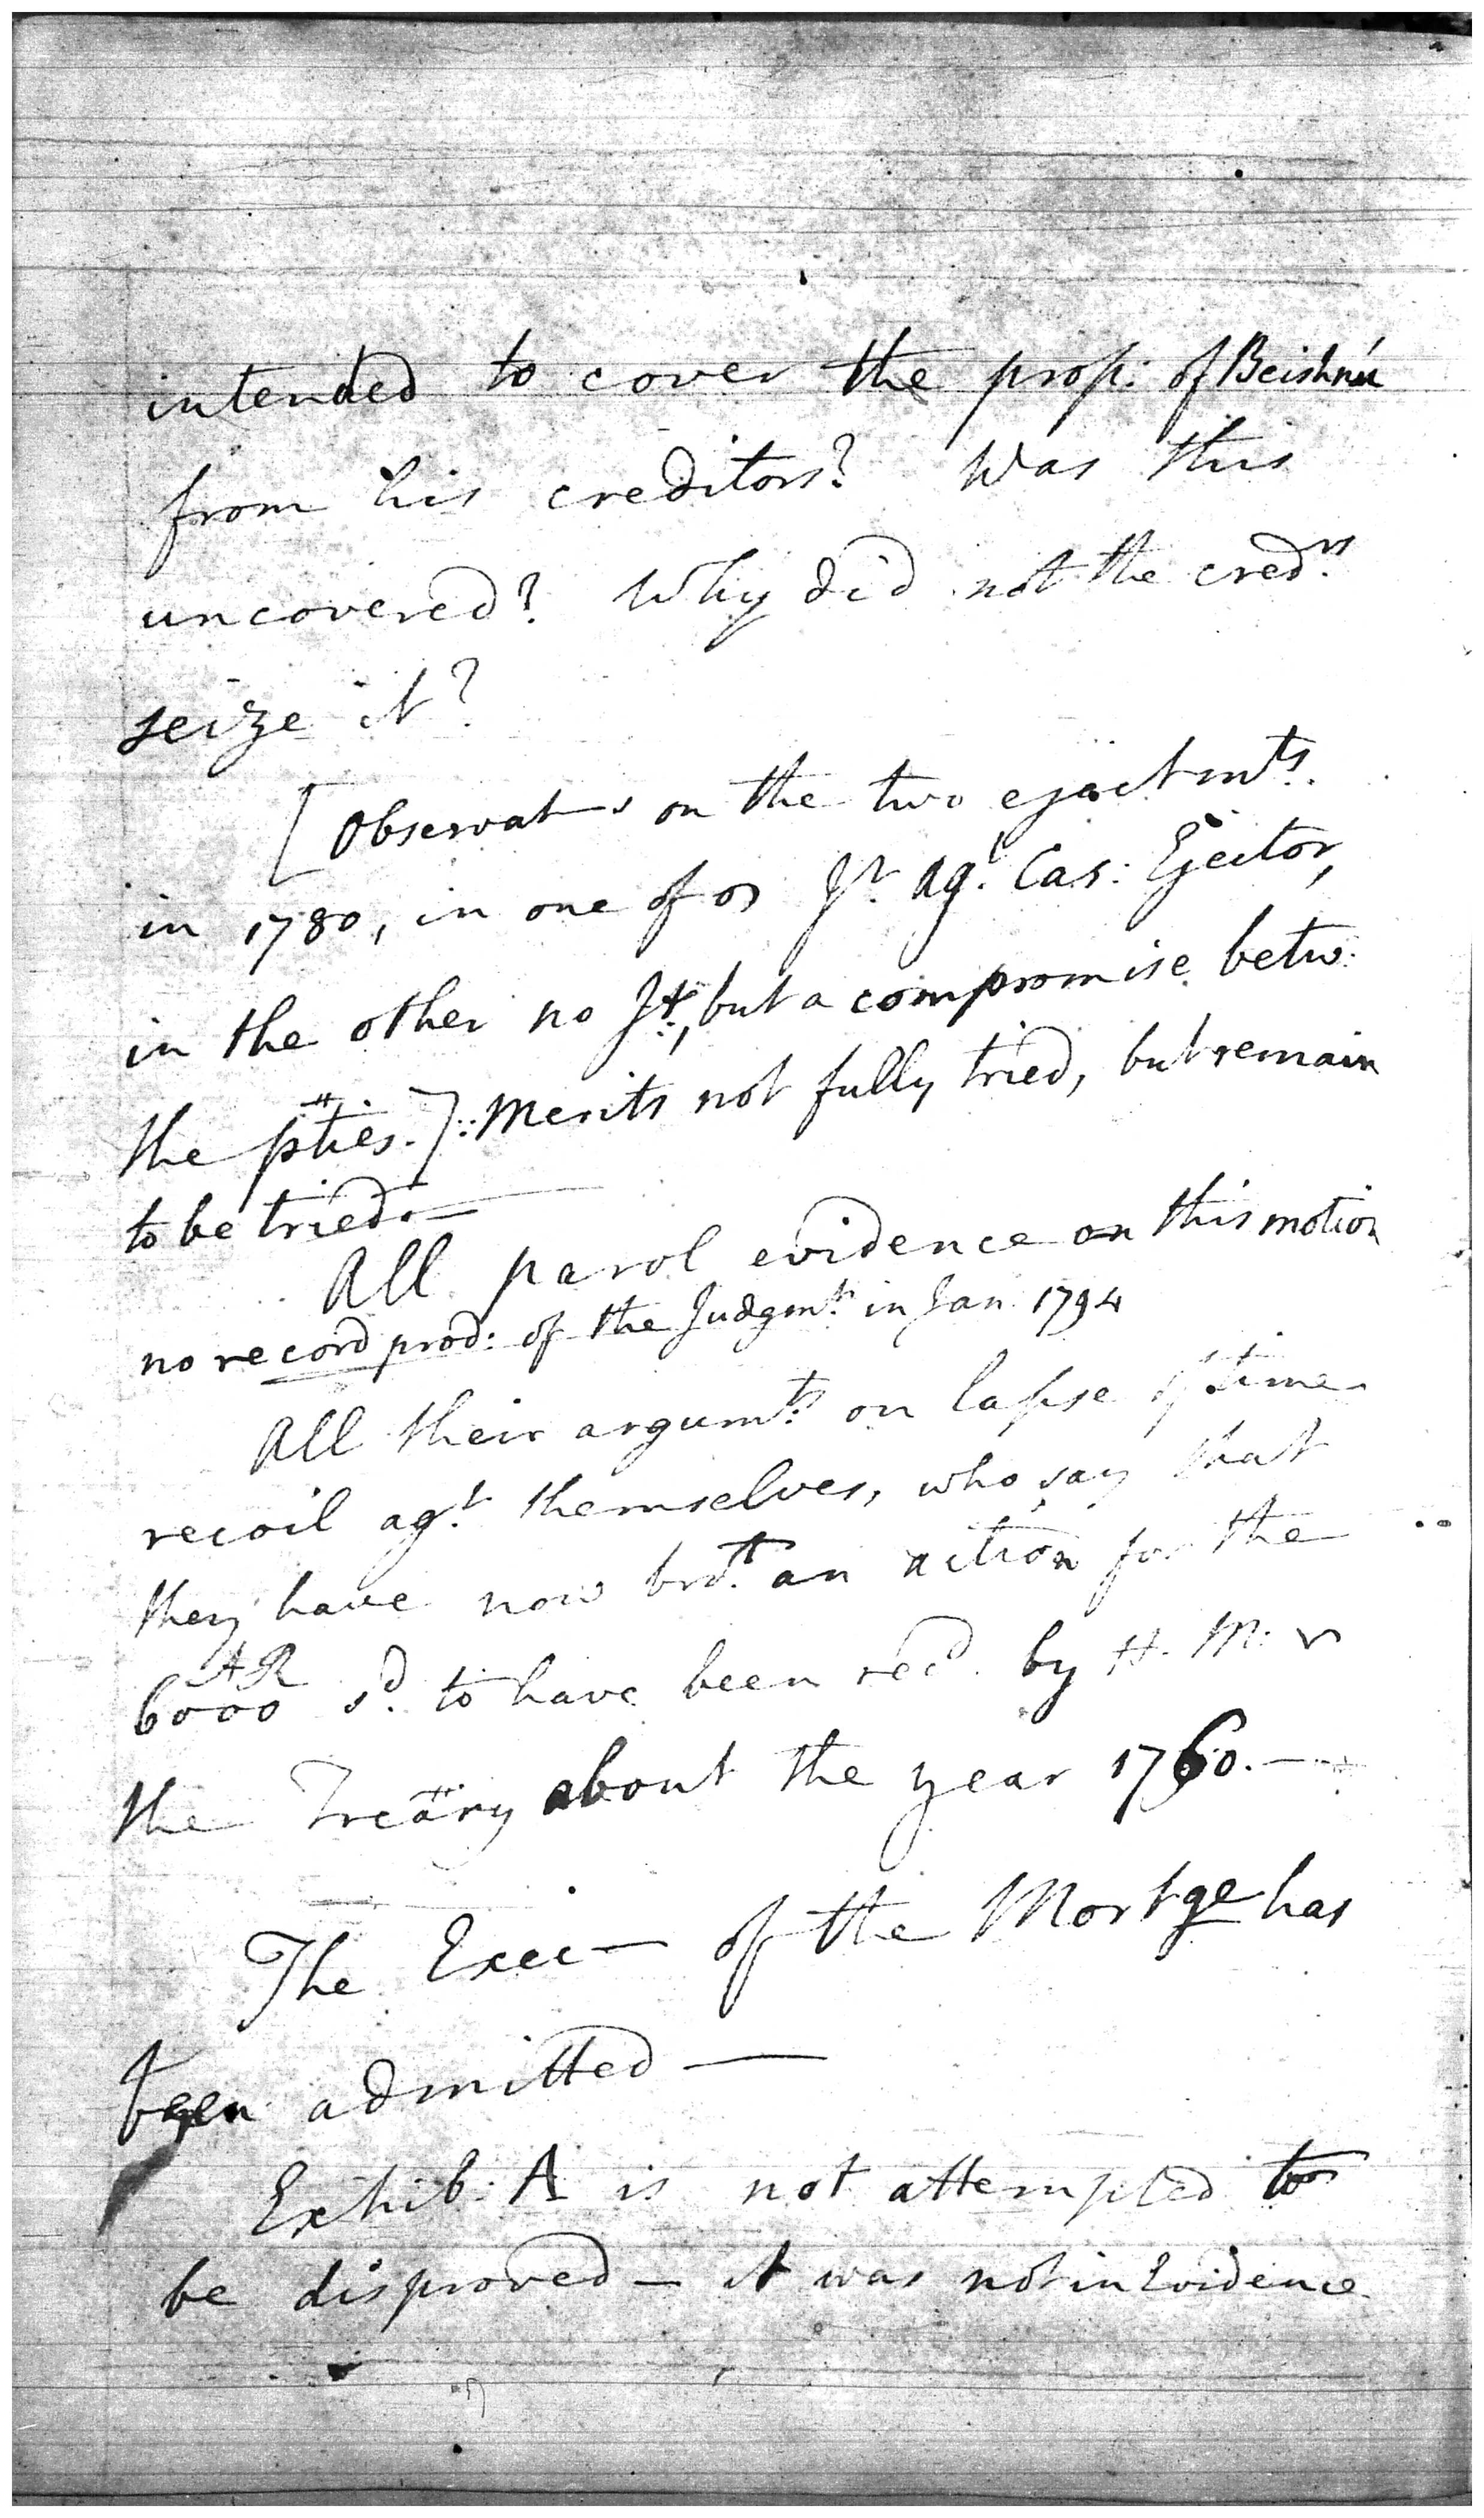 intended to cover the prop: of Beishnu
from his creditors? Was this
uncovered? Why did not the cred.rs
seize it?
[Observat—s on the two ejectmts.
in 1780, in one of Jt. agt. Cas: Ejector,
in the other no Jt:, but a compromise betw:
the pties.] :: Merits not fully tried, but remain
to be tried.—
All parol evidence on this motion
no record prod: of the Judgmt. in Jan 1794
All their argumts. on lapse of time
recoil agt. themselves, who say that
they have now brot. an action for the
6000 AR sd. to have been recd. by H. M.
the Treäry about the year 1760.—
The Exec— of the Mortge has
been admitted —
Exhib: A is not attempted to
be disproved — it was not in Evidence